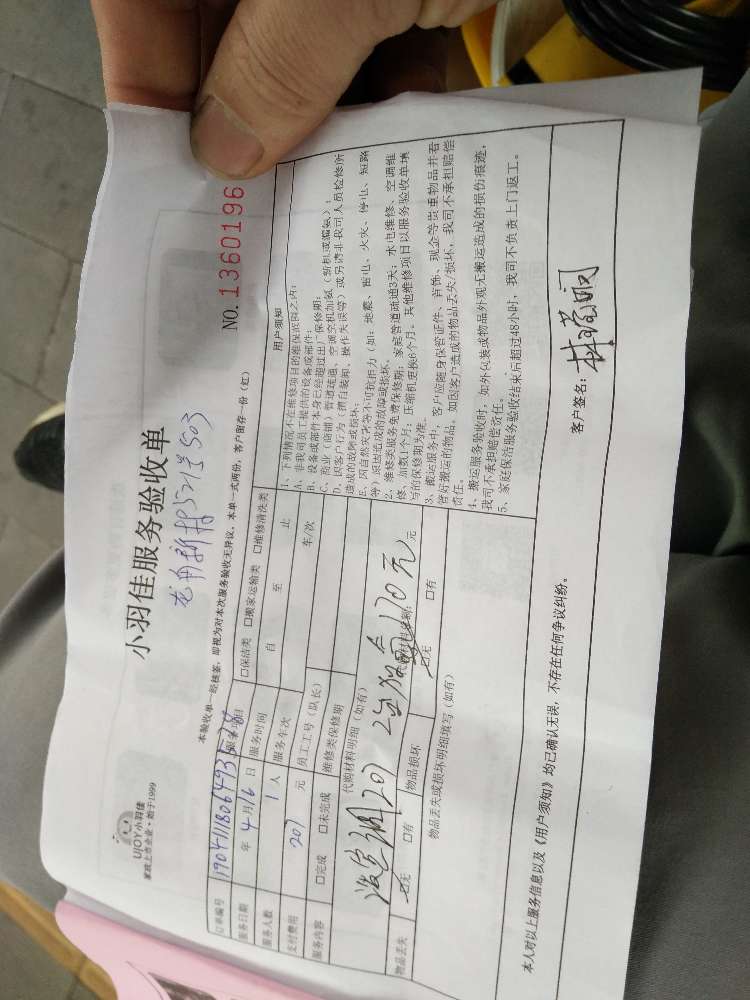 UJOY小羽佳
家政上市企业·始于1999
小羽佳服务验收单
NO.1360196
本验收单一经核签，即视为对本次服务验收无异议，本单一式两份，客户留存一份（红）
订单编号
服务项目 □保洁类 □搬家运输类 □维修清洗类
服务日期 年 4月16日 服务时间 自 至 止
服务人数 1 人 服务车次 车/次
支付费用 201 元 员工工号（队长）
服务内容 □完成 □未完成 维修类保修期
代购材料明细（如有）
代购材料金额： 元
170元
物品丢失 □无 □有 物品损坏 □无 □有
物品丢失或损坏明细填写（如有）
用户须知
1、下列情况不在维修项目的维保范围之内：
A、非我司员工提供的设备或部件；
B、设备或部件本身已经超过出厂保修期；
C、商业（商铺）管道疏通、空调空机加氨（新机或漏氨）；
D、因客户行为（擅自装卸、操作失误等）或另请非我司人员检修所
造成的故障或损坏；
E、因自然灾害等不可抗拒力（如：地震、雷电、火灾、停电、短路
等）原因造成的故障或损坏。
2、维修类服务免费保修期：家庭管道疏通3天；水电维修、空调维
修、加氨1个月；压缩机更换6个月。其他维修项目以服务验收单填
写的保修期为准。
3、搬运服务中，客户应随身保管证件、首饰、现金等贵重物品并看
管好搬运的物品。如因客户造成的物品丢失/损坏，我司不承担赔偿
责任。
4、搬运服务验收时，如外包装或物品外观无搬运造成的损伤痕迹，
我司不承担赔偿责任。
5、家庭保洁服务验收结束后超过48小时，我司不负责上门返工。
本人对以上服务信息以及《用户须知》均已确认无误，不存在任何争议纠纷。
客户签名：